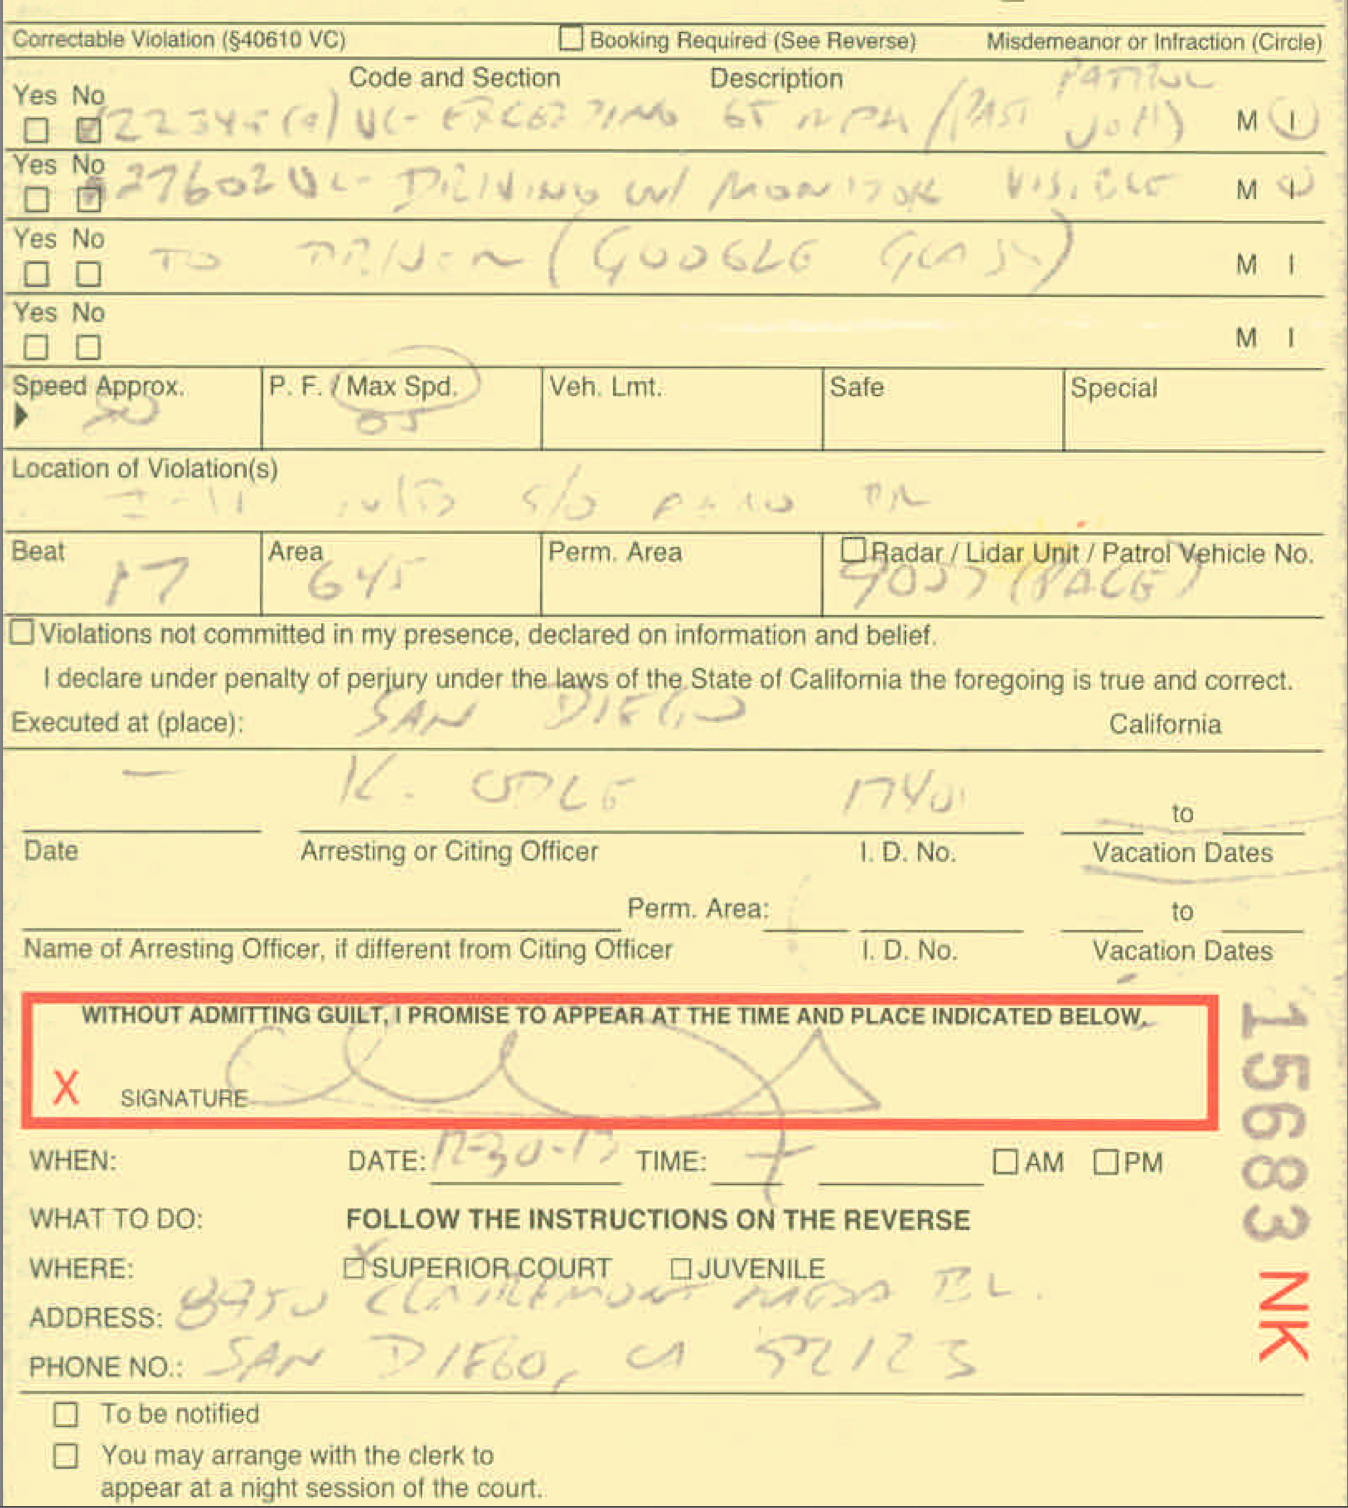 Correctable Violation (§40610 VC) ☐ Booking Required (See Reverse) Misdemeanor or Infraction (Circle)
Code and Section Description PATROL
Yes No 22349(a) VC- EXCEEDING 65 MPH / (PAST VEH) M I
Yes No 27602 VC- DRIVING W/ MONITOR VISIBLE M I
Yes No TO DRIVER (GOOGLE GLASS) M I
Yes No M I
Speed Approx. P. F. / Max Spd. Veh. Lmt. Safe Special
80 65
Location of Violation(s)
S/O DR
Beat Area Perm. Area ☐ Radar / Lidar Unit / Patrol Vehicle No.
17 645 (PACE)
☐ Violations not committed in my presence, declared on information and belief.
I declare under penalty of perjury under the laws of the State of California the foregoing is true and correct.
Executed at (place): SAN DIEGO California
K. ODLE to
Date Arresting or Citing Officer I. D. No. Vacation Dates
Perm. Area: to
Name of Arresting Officer, if different from Citing Officer I. D. No. Vacation Dates
WITHOUT ADMITTING GUILT, I PROMISE TO APPEAR AT THE TIME AND PLACE INDICATED BELOW.
X SIGNATURE
WHEN: DATE: 12-30-13 TIME: ☐ AM ☐ PM
WHAT TO DO: FOLLOW THE INSTRUCTIONS ON THE REVERSE
WHERE: ☐ SUPERIOR COURT ☐ JUVENILE
ADDRESS: 8950 CLAIREMONT MESA BL.
PHONE NO.: SAN DIEGO, CA 92123
☐ To be notified
☐ You may arrange with the clerk to
appear at a night session of the court.
15683 NK